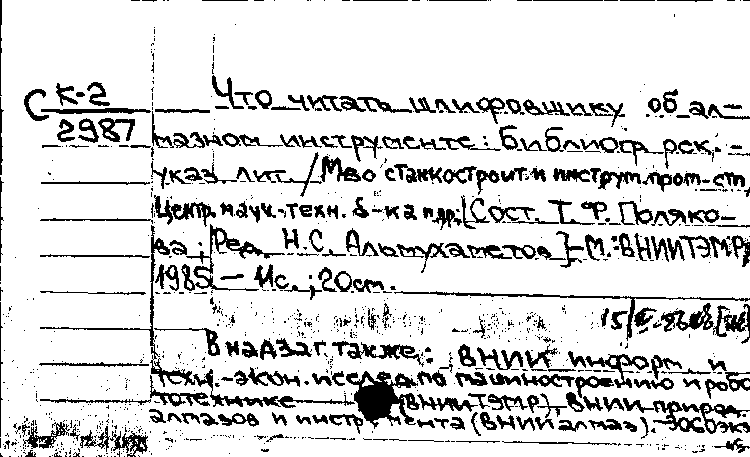 С К-2
2987
Что читать шлифовщику об ал-
мазном инструменте: Библиогр. рек.-
указ. лит. / М-во станкостроит. и инструм. пром-сти,
Центр. науч.-техн. б-ка и др.; [Сост. Т. Ф. Поляко-
ва; Ред. Н.С. Альмухаметов]. - М.: ВНИИТЭМР,
1985 - 11с.; 20см.
15/
В надзаг. также: ВНИИ информ. и
техн.-экон. исслед. по машиностроению и робо
тотехнике (ВНИИТЭМР), ВНИИ природ.
алмазов и инструмента (ВНИИалмаз).